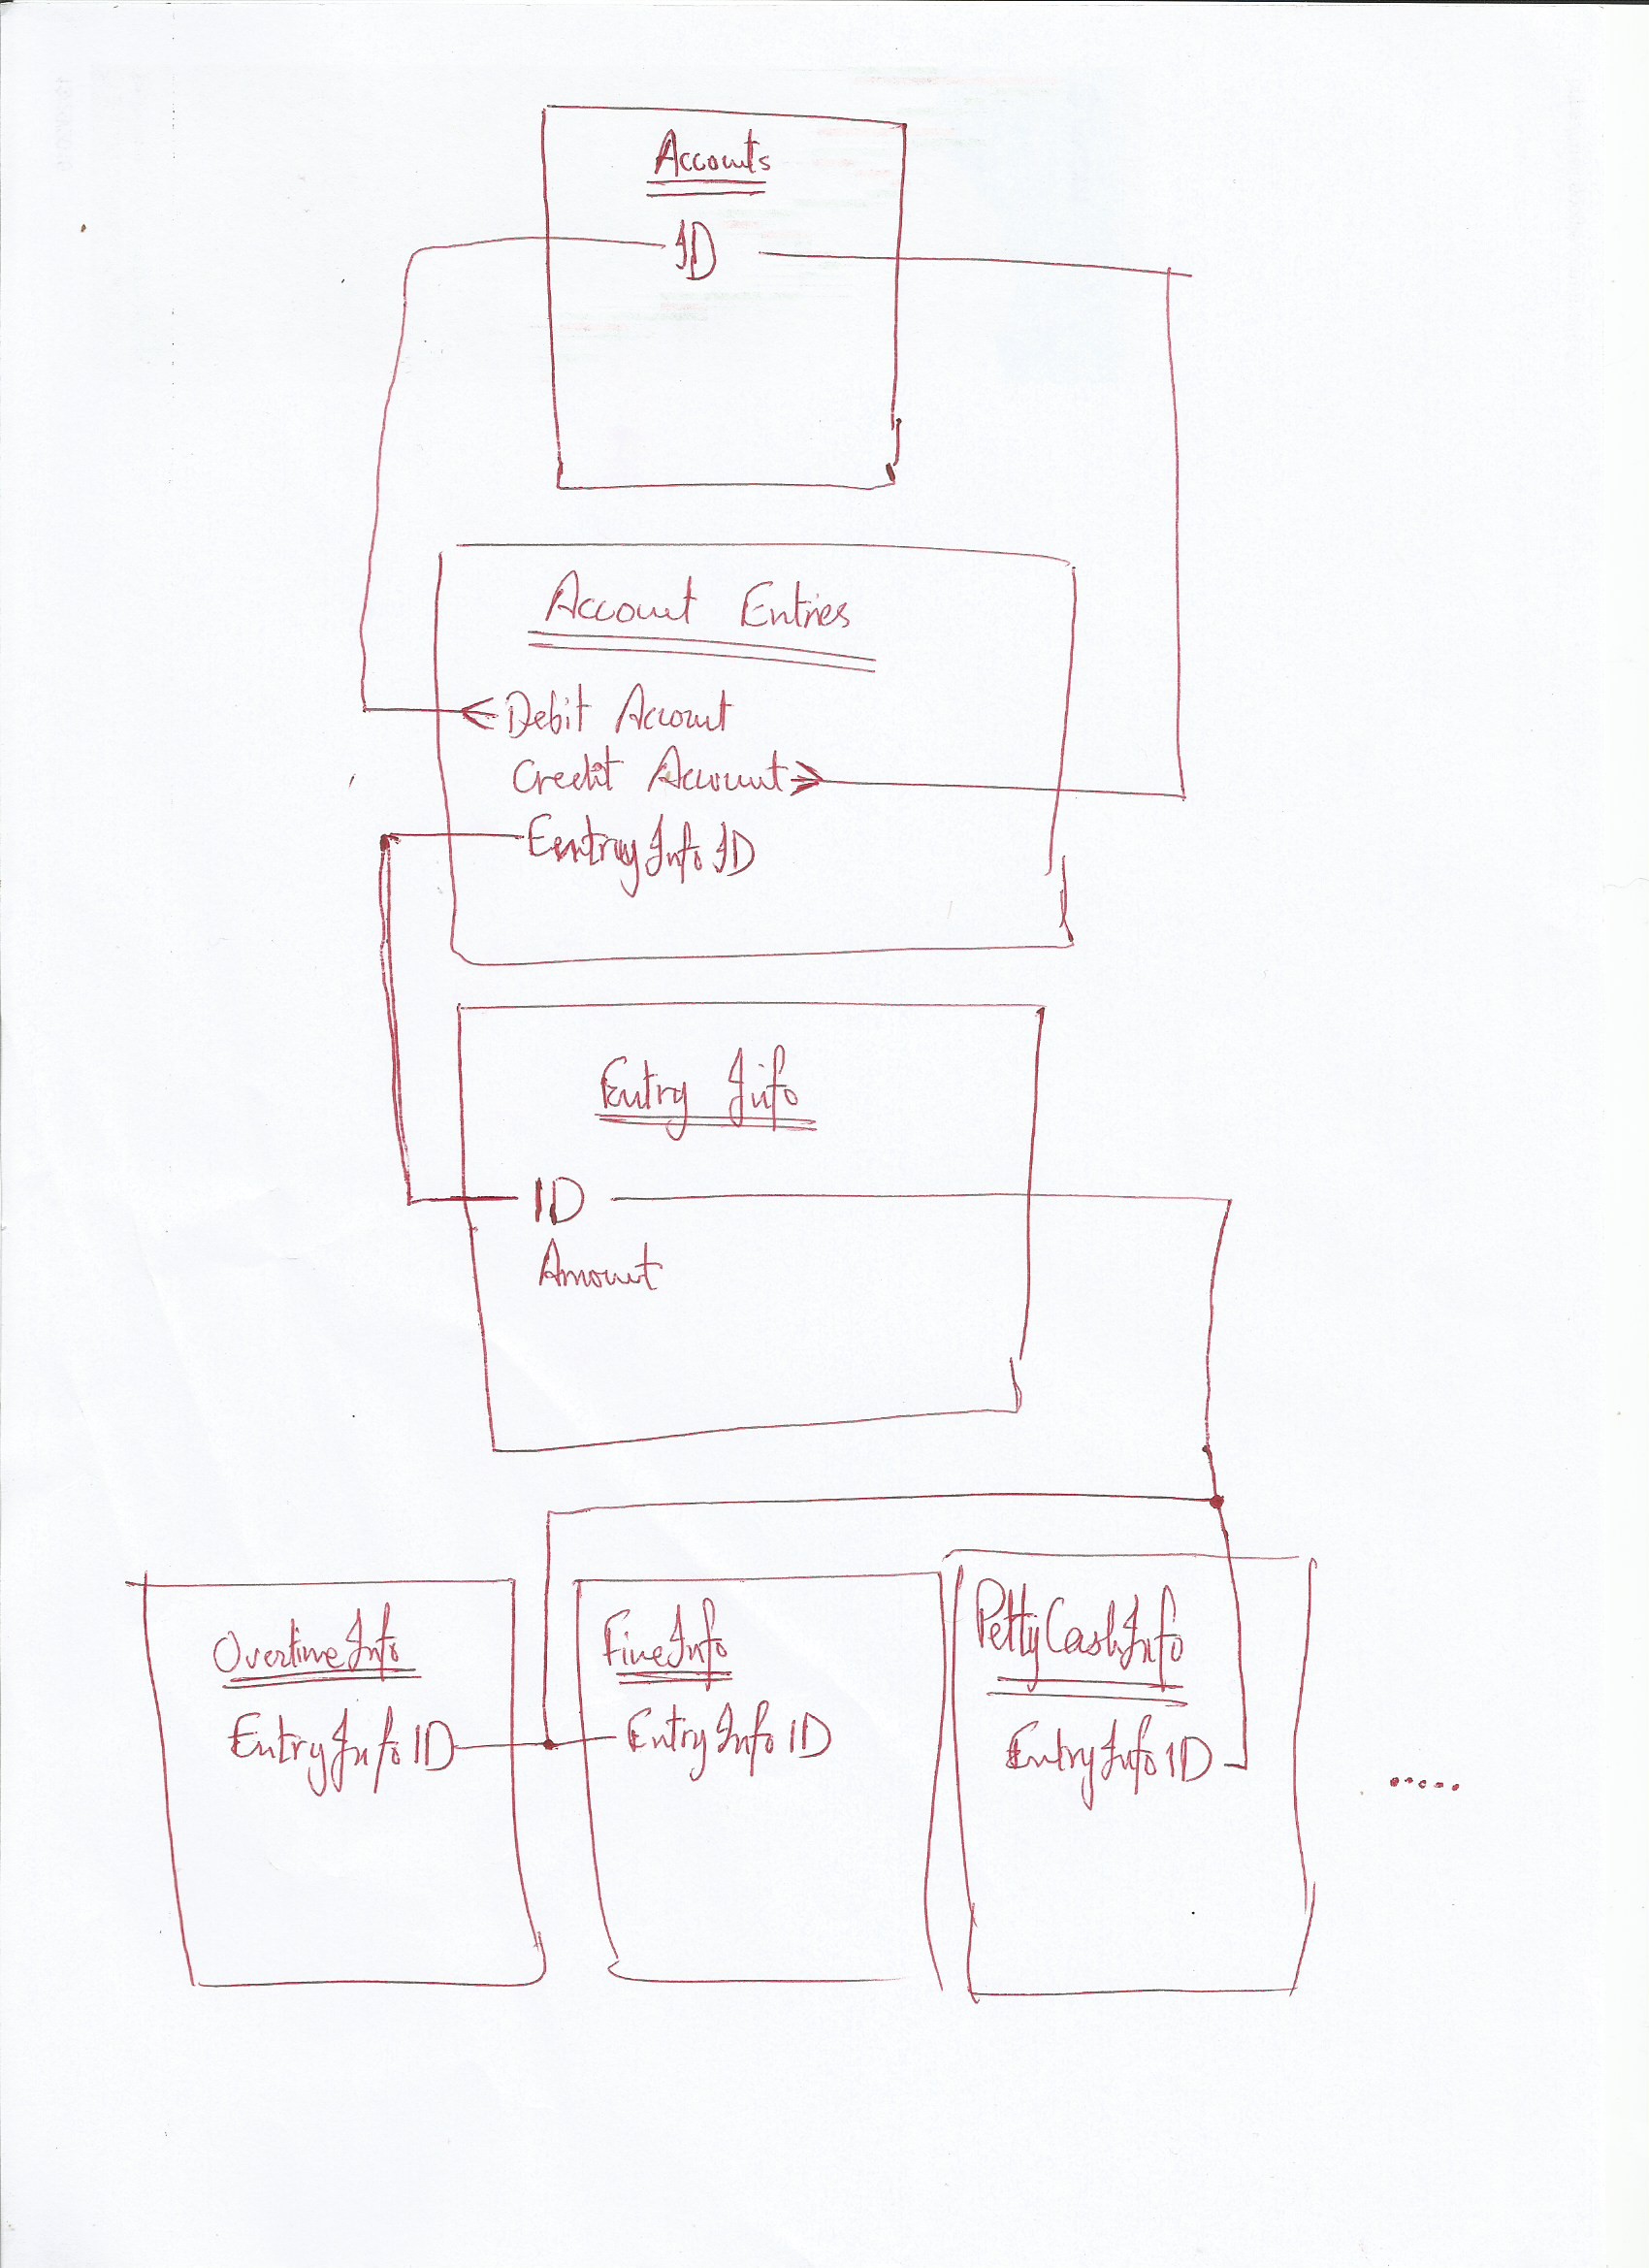 Accounts
ID
Account Entries
Debit Account
Credit Account
EentryInfoID
Entry Info
ID
Amount
OvertimeInfo
EntryInfoID
FineInfo
EntryInfoID
PettyCashInfo
EntryInfoID
.....